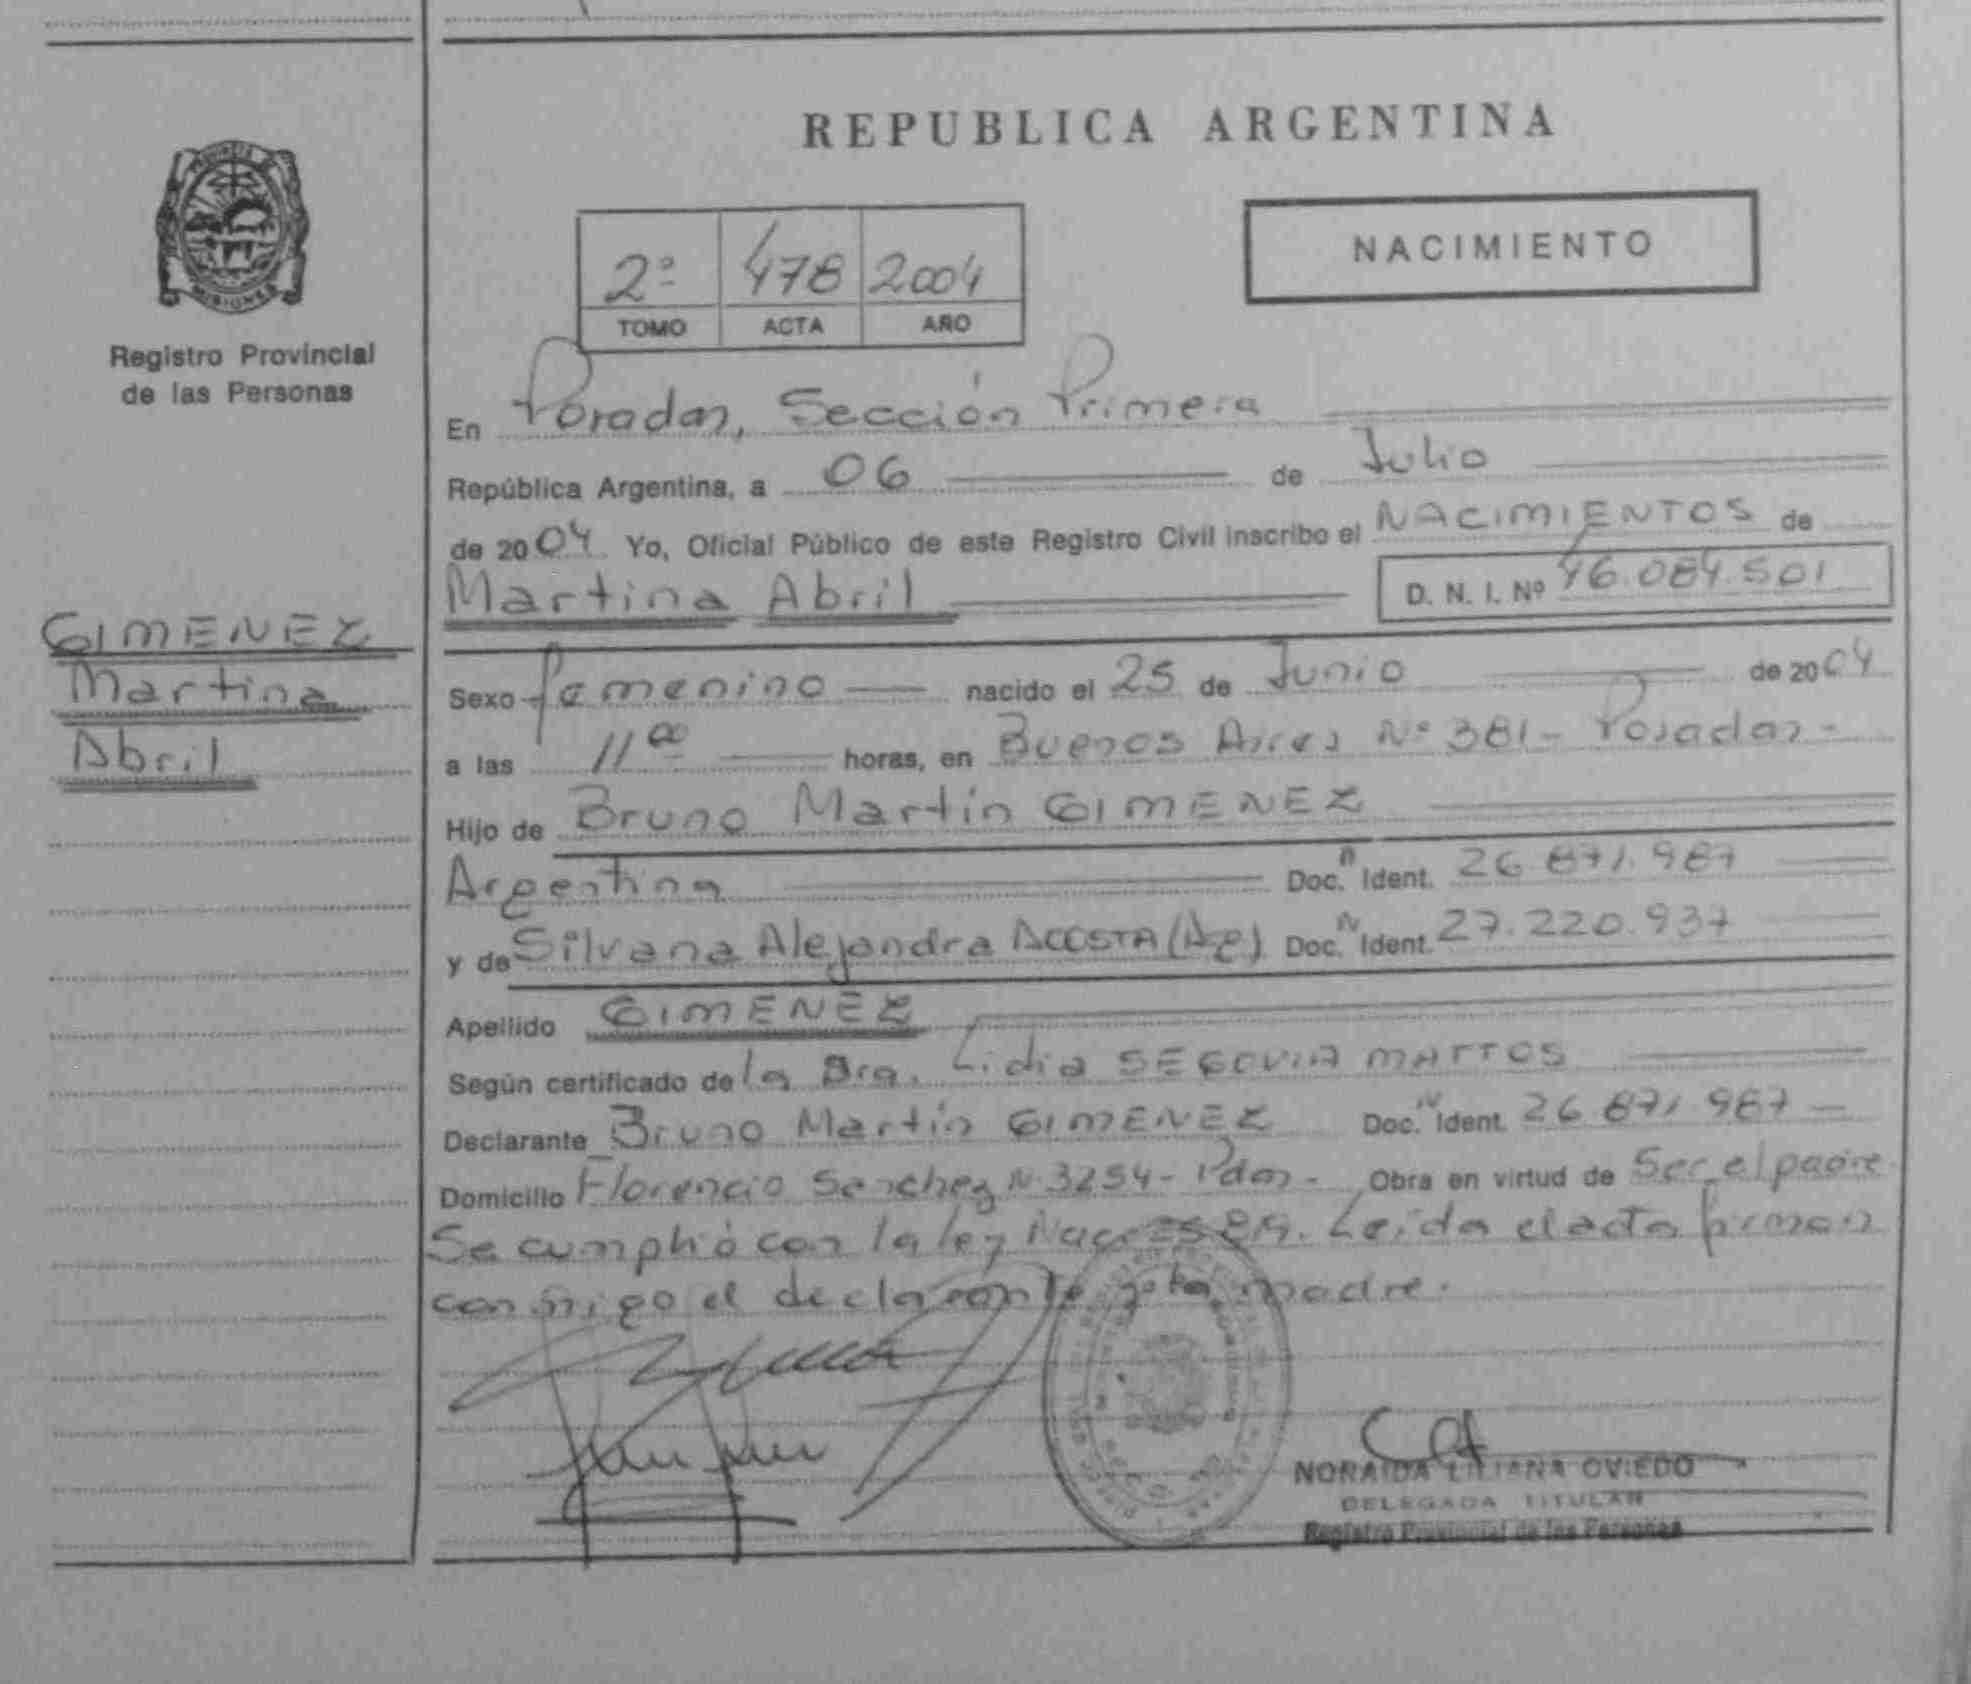 REPUBLICA ARGENTINA
PROVINCIA DE
MISIONES
Registro Provincial
de las Personas
NACIMIENTO
2º 478 2004
TOMO ACTA AÑO
En Posadas, Sección Primera
República Argentina, a 06 de Julio
de 2004 Yo, Oficial Público de este Registro Civil inscribo el NACIMIENTOS de
Martina Abril D. N. I. Nº 46.084.501
GIMENEZ
Martina
Abril
Sexo femenino nacido el 25 de Junio de 2004
a las 11 00 horas, en Buenos Aires Nº 381 - Posadas -
Hijo de Bruno Martín GIMENEZ
Argentina Doc. N Ident. 26.871.987
y de Silvana Alejandra ACOSTA (Arg) Doc. N Ident. 27.220.937
Apellido GIMENEZ
Según certificado de la Dra. Lidia SEGOVIA MATTOS
Declarante Bruno Martín GIMENEZ Doc. N Ident. 26.871.987 -
Domicilio Florencio Sanchez N 3254 - Pdas - Obra en virtud de Ser el padre
Se cumplió con la ley Leída el acta firman
conmigo el declarante y la madre.
NORAIDA LILIANA OVIEDO
DELEGADA TITULAR
Registro Provincial de las Personas